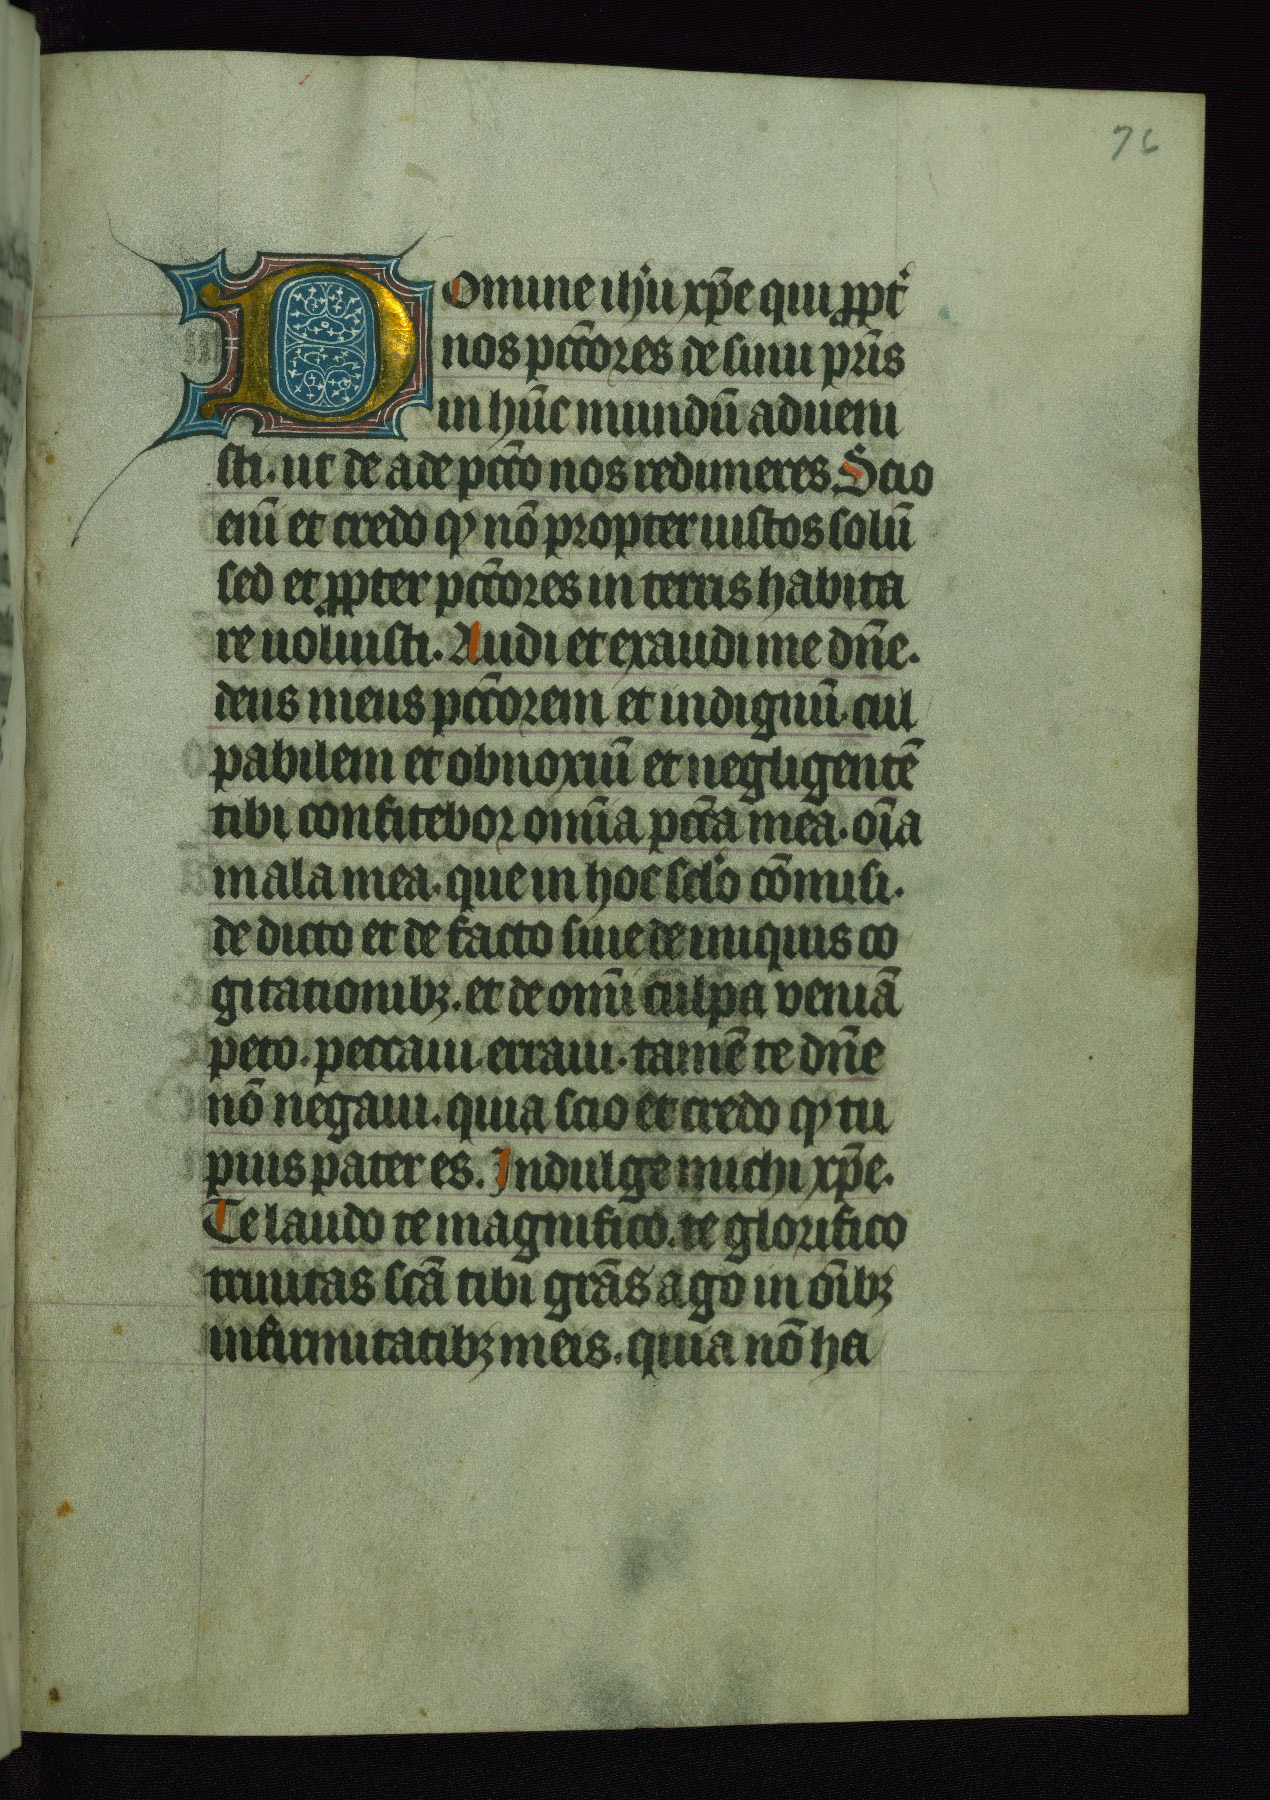 76
Domine ihu xp̄e qui ꝓpt
nos pc̄c̄ores de sinu pr̄is
in hūc mundū adueni
sti. ut de ade pc̄c̄o nos redimeres. Scio
enī et credo qꝫ nō propter iustos solū
sed et ꝓpter pc̄c̄ores in terris habita
re uoluisti. Audi et exaudi me dn̄e.
deus meus pc̄c̄orem et indignū. cul
pabilem et obnoxiū et negligentē
tibi confitebor omīa pc̄c̄a mea. oīa
mala mea. que in hoc sclo cōmisi.
de dicto et de facto siue de iniquis co
gitationibꝫ. et de omī culpa veniā
peto. peccaui. erraui. tamē te dn̄e
nō negaui. quia scio et credo qꝫ tu
pius pater es. Indulge michi xp̄e.
Te laudo te magnifico. te glorifico
trinitas scā tibi grās ago in oībꝫ
infirmitatibꝫ meis. quia nō ha